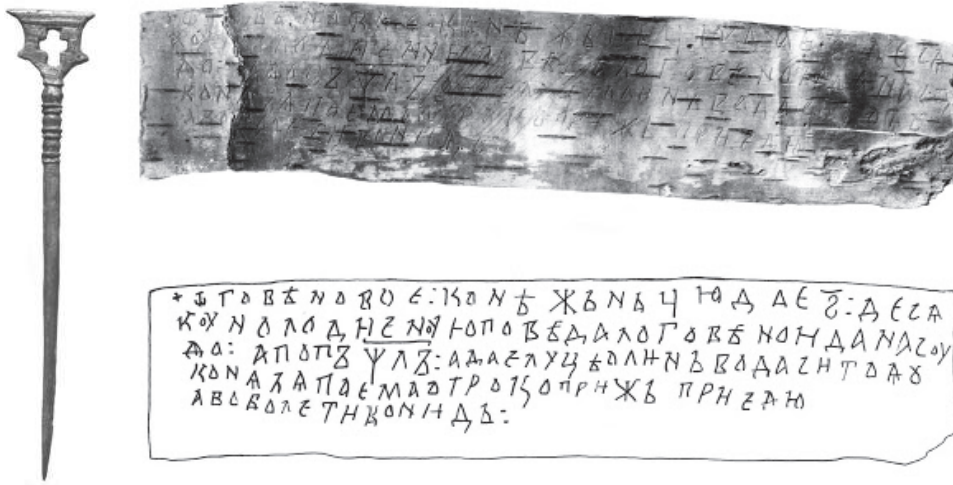 + Ѿ ГОВѢНОВОЕ : КОНѢЖЬНЬЦЮДАЕ Ѯ : ДЕСѦ
КОУНОЛОДИЕНОУЮПОВѢДАЛОГОВѢНОИДАНАСОУ
ДО : АПОПЪѰЛЪ : АДАЕЛУЦѢОЛИНЪВОДАСИТОАУ
КОНѦЗѦПОЕМАОТРОКОПРИЖЬ ПРИЕДЮ
АВОБОЛЕТИВОНИДЬ :